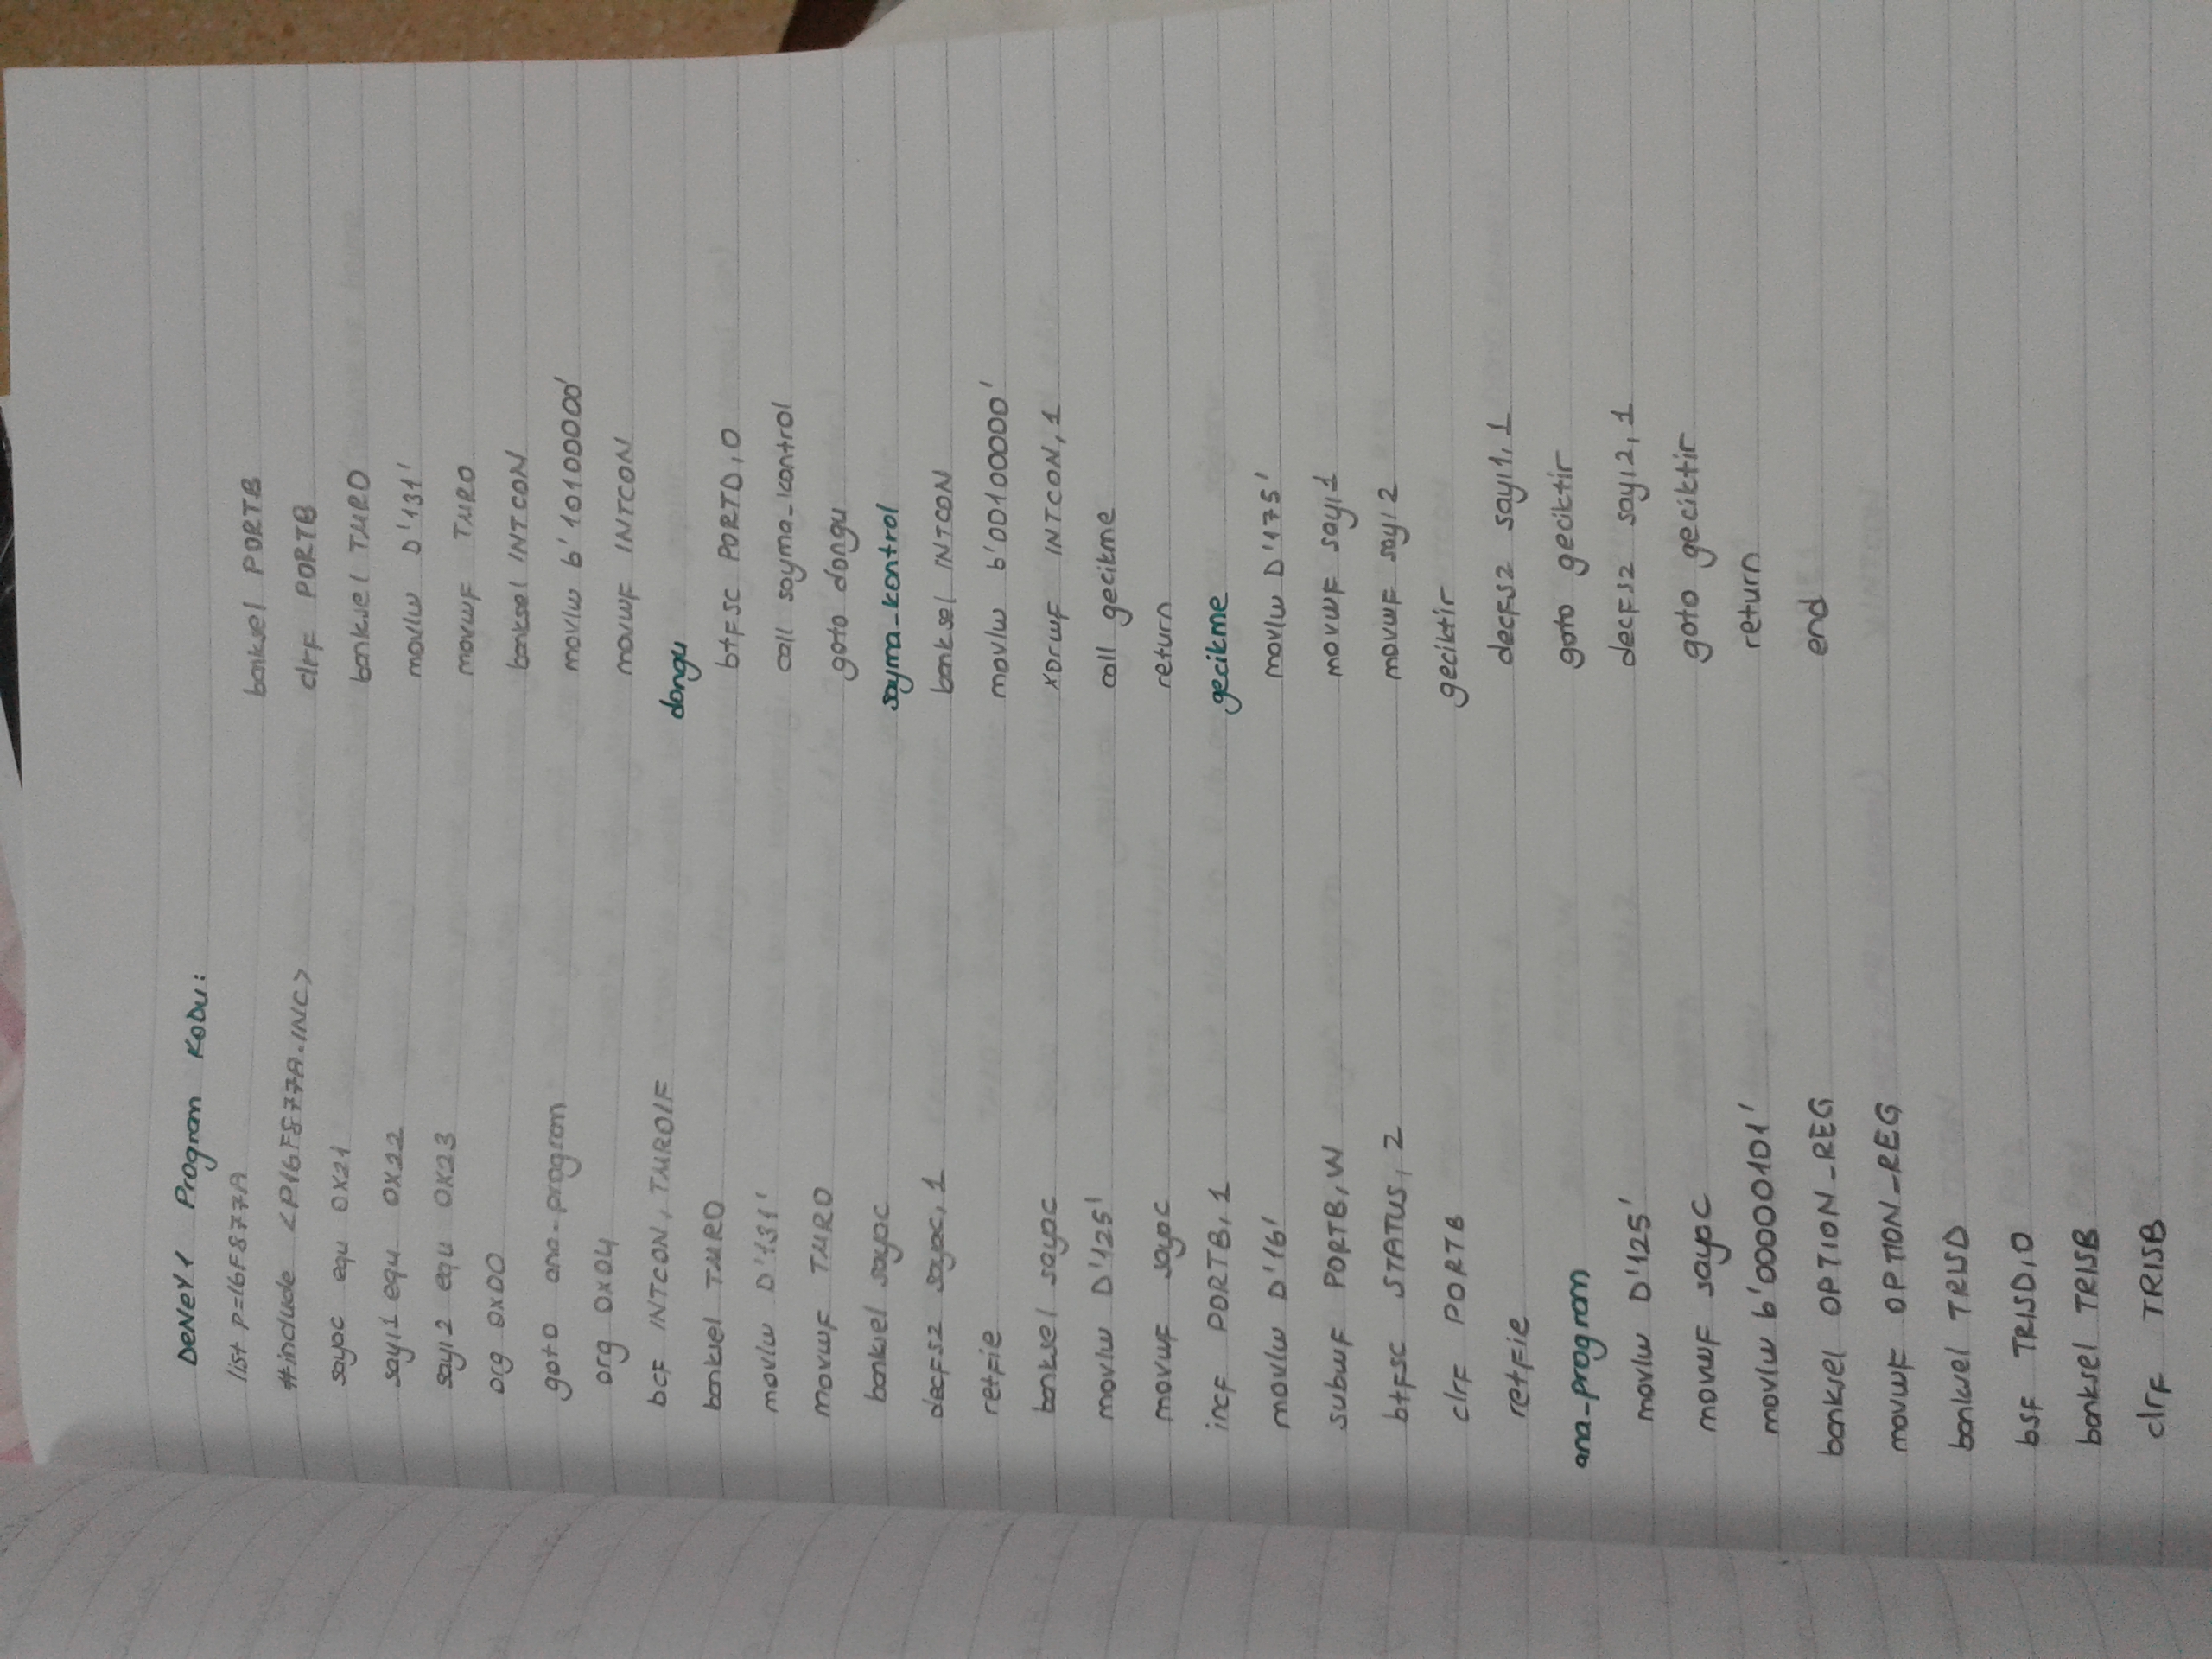 DeNeY1 Program KoDu:
list p=16F877A
#include <P16F877A.INC>
sayac equ 0X21
sayı1 equ 0X22
sayı2 equ 0X23
org 0x00
goto ana-program
org 0x04
bcF INTCON, TMR0IF
banksel TMR0
movlw D'131'
movwF TMR0
banksel sayac
decFsz sayac, 1
retFie
banksel sayac
movlw D'125'
movwF sayac
incF PORTB, 1
movlw D'16'
subwF PORTB, W
btFsc STATUS, Z
clrF PORTB
retFie
ana_program
movlw D'125'
movwF sayac
movlw b'00000101'
banksel OPTION_REG
movwF OPTION_REG
banksel TRISD
bsF TRISD,0
banksel TRISB
clrF TRISB
banksel PORTB
clrF PORTB
banksel TMR0
movlw D'131'
movwF TMR0
banksel INTCON
movlw b'10100000'
movwF INTCON
dongu
btFsc PORTD,0
call sayma_kontrol
goto dongu
sayma_kontrol
banksel INTCON
movlw b'00100000'
xorwF INTCON, 1
call gecikme
return
gecikme
movlw D'175'
movwF sayı1
movwF sayı2
geciktir
decFsz sayı1, 1
goto geciktir
decFsz sayı2, 1
goto geciktir
return
end